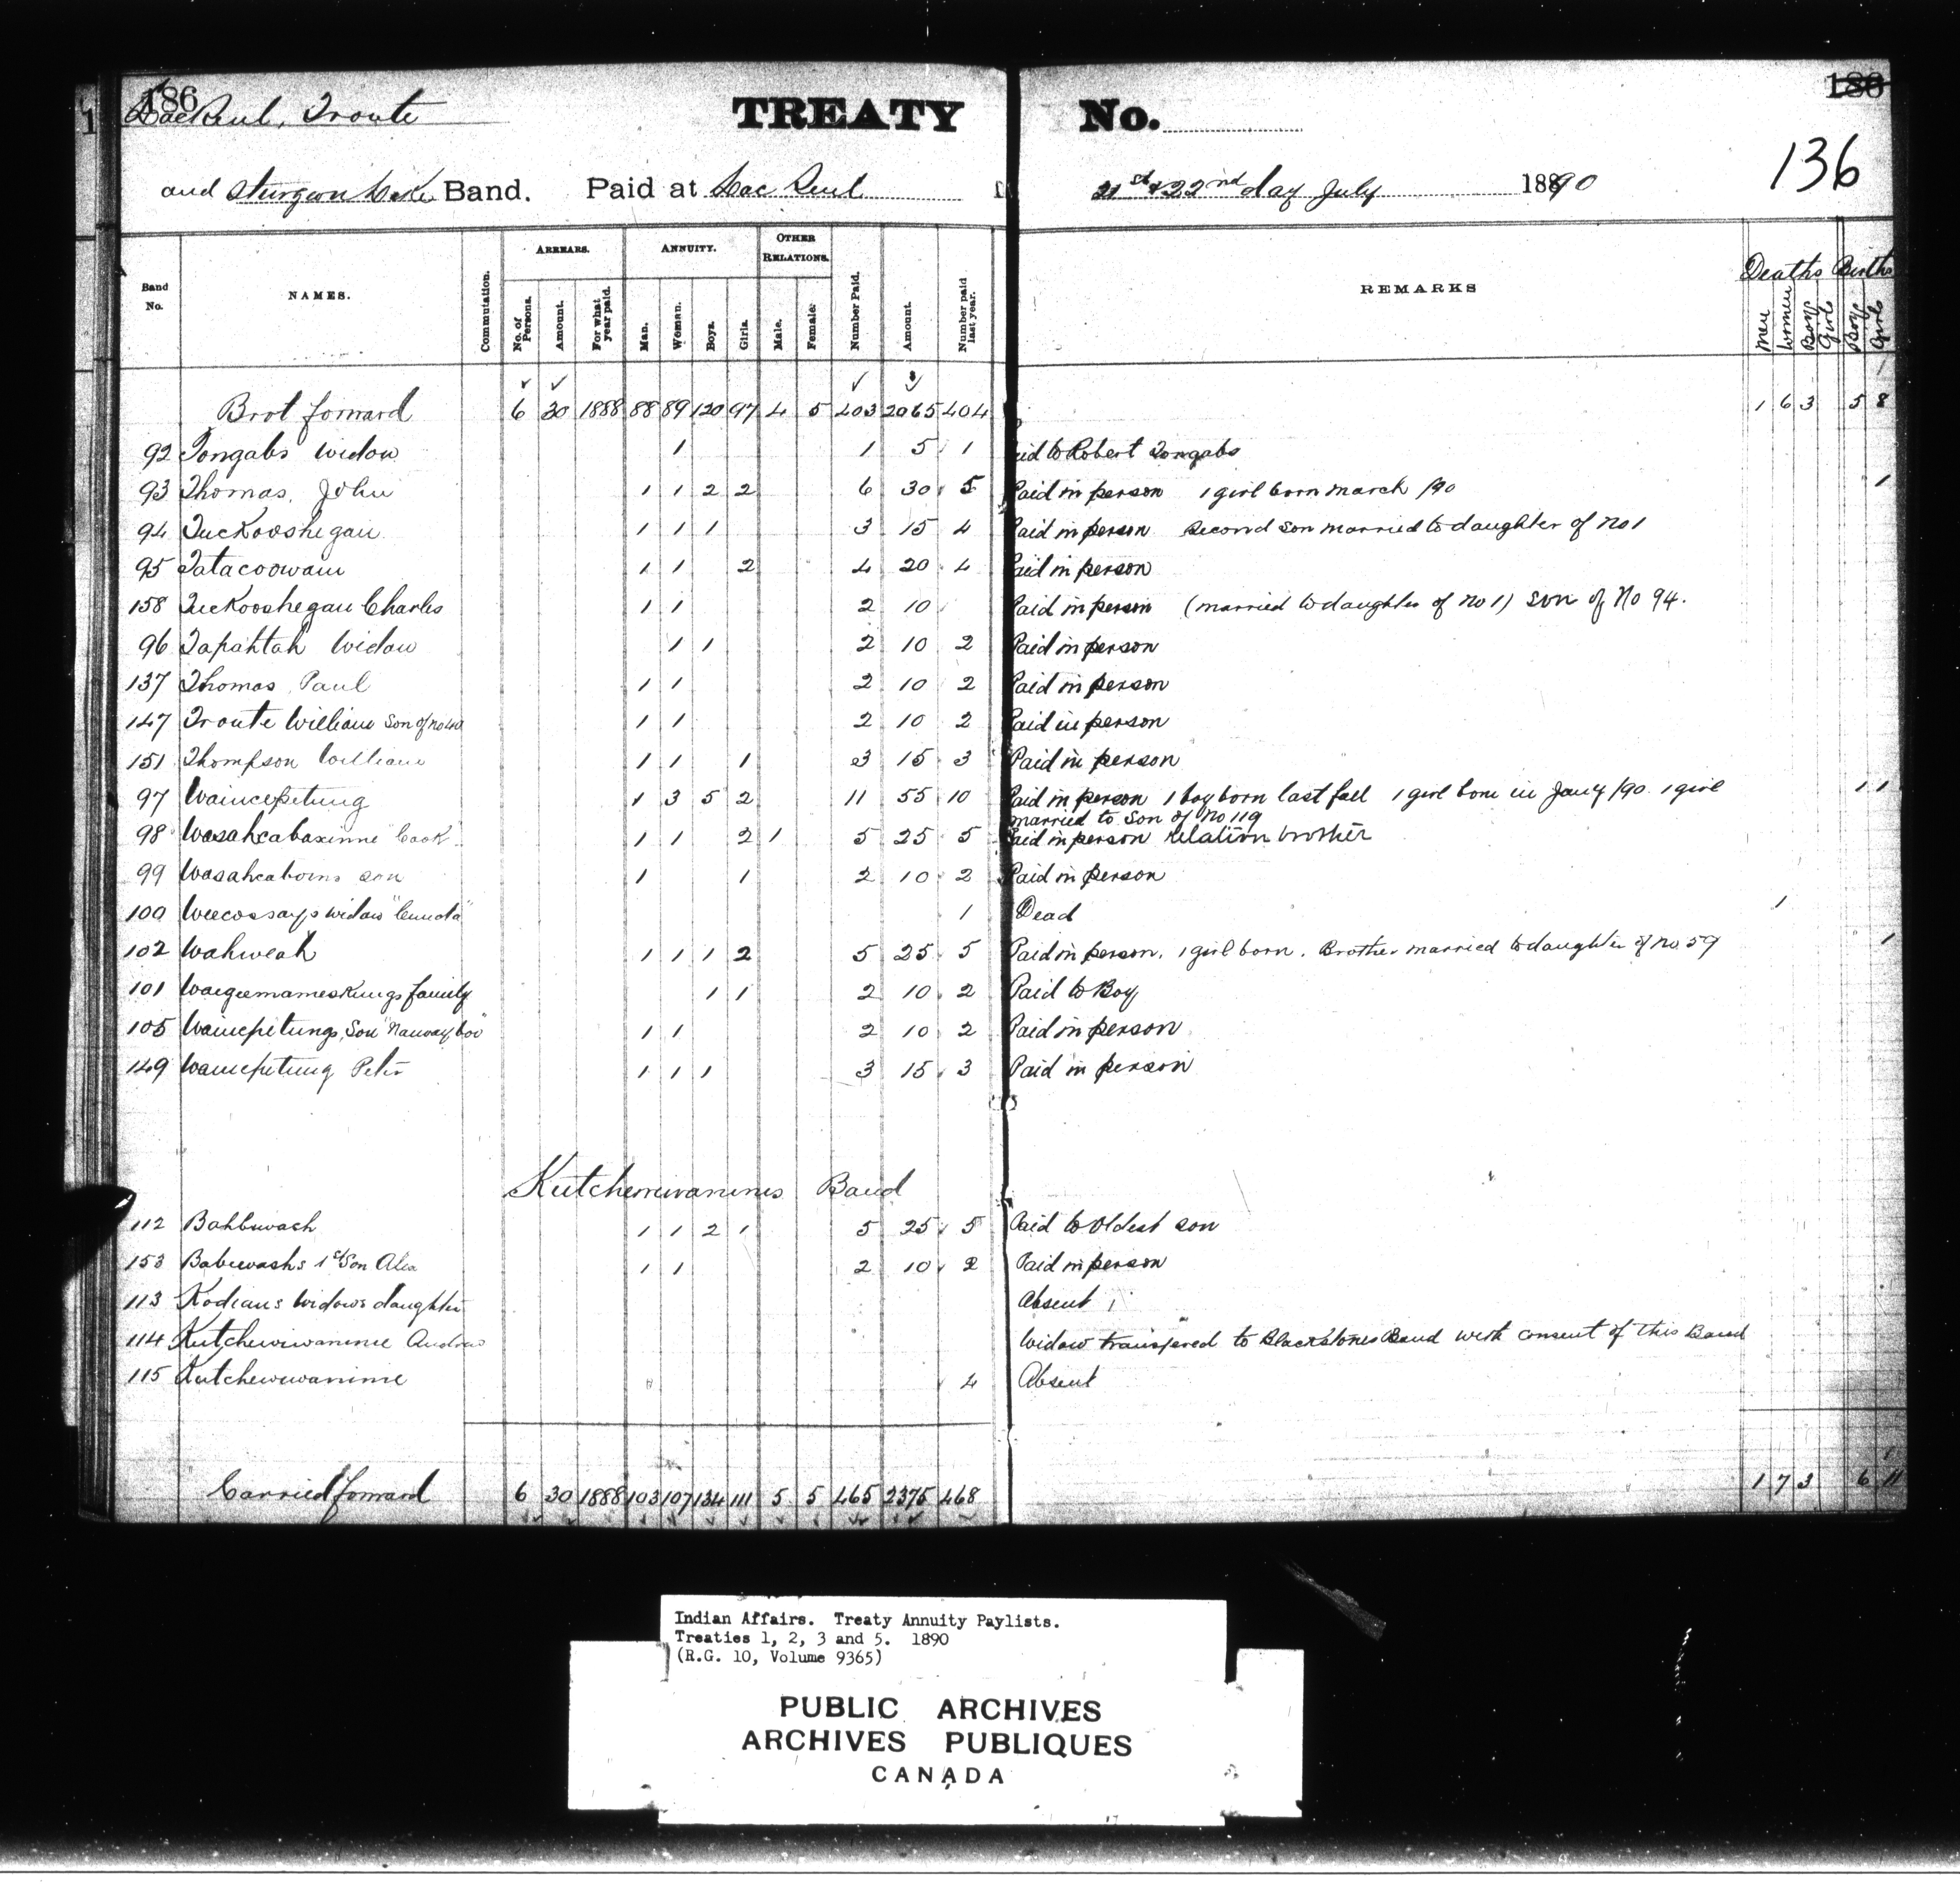 186
186
Lac Seul, Troute
TREATY No.
136
and Sturgeon Lake Band. Paid at Lac Seul 21st & 22nd day July 1890
Band No. NAMES. Commutation. ARREARS. ANNUITY. OTHER RELATIONS. Number Paid. Amount. Number paid last year. REMARKS Deaths Births
No. of Persons. Amount. For what year paid. Man. Woman. Boys. Girls. Male. Female. Men Women Boys Girls Boys Girls
Brot forward 6 30 1888 88 89 120 97 4 5 403 2065 404 1 6 3 5 8
92 Tongabs Widow 1 1 5 1 Paid to Robert Tongabs
93 Thomas, John 1 1 2 2 6 30 5 Paid in person 1 girl born march /90 1
94 Tuckooshegan 1 1 1 3 15 4 Paid in person Second son married to daughter of no 1
95 Tatacoowam 1 1 2 4 20 4 Paid in person
158 Tuckooshegan Charles 1 1 2 10 Paid in person (married to daughter of no 1) son of No 94.
96 Tapahtah Widow 1 1 2 10 2 Paid in person
137 Thomas, Paul 1 1 2 10 2 Paid in person
147 Troute William Son of no 1 1 2 10 2 Paid in person
151 Thompson William 1 1 1 3 15 3 Paid in person
97 Waincepetung 1 3 5 2 11 55 10 Paid in person 1 boy born last fall 1 girl born in Jany /90. 1 girl 1 1
married to Son of No 119
98 Wasahcabaxinne "Cook" 1 1 2 1 5 25 5 Paid in person Relation brother
99 Wasahcaboins son 1 1 2 10 2 Paid in person
100 Weecossays widow 1 Dead 1
102 Wahweah 1 1 1 2 5 25 5 Paid in person. 1 girl born. Brother married to daughter of no 59 1
101 Waegeemameskungs family 1 1 2 10 2 Paid to Boy
105 Waincepetungs Son "Nanwayboo" 1 1 2 10 2 Paid in person
149 Waincepetung Peter 1 1 1 3 15 3 Paid in person
Kutchewiwaninis Band
112 Bahbewash 1 1 2 1 5 25 5 Paid to oldest son
153 Babewashs 1st Son Alex 1 1 2 10 2 Paid in person
113 Kodians Widows daughter Absent
114 Kutchewiwaninie Andrew Widow transfered to Blackstones Band with consent of this Band
115 Kutchewiwaninie 4 Absent
Carried forward 6 30 1888 103 107 134 111 5 5 465 2375 468 1 7 3 6 11
Indian Affairs. Treaty Annuity Paylists.
Treaties 1, 2, 3 and 5. 1890
(R.G. 10, Volume 9365)
PUBLIC ARCHIVES
ARCHIVES PUBLIQUES
CANADA